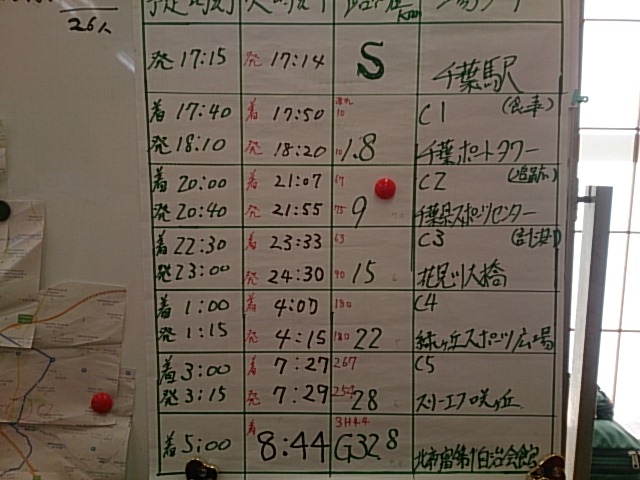 26人
予定時刻 実時刻 距離km 場所
発 17:15 発 17:14 S 千葉駅
着 17:40 着 17:50 遅れ 10 C1 (食事)
発 18:10 発 18:20 10 1.8 千葉ポートタワー
着 20:00 着 21:07 67 C2
発 20:40 発 21:55 75 9 千葉県スポーツセンター
着 22:30 着 23:33 63 C3
発 23:00 発 24:30 90 15 花見川大橋
着 1:00 着 4:07 180 C4
発 1:15 発 4:15 180 22 緑ヶ丘スポーツ広場
着 3:00 着 7:27 267 C5
発 3:15 発 7:29 254 28 スリーエフ咲が丘
着 5:00 着 8:44 3H44 G32.8 北習